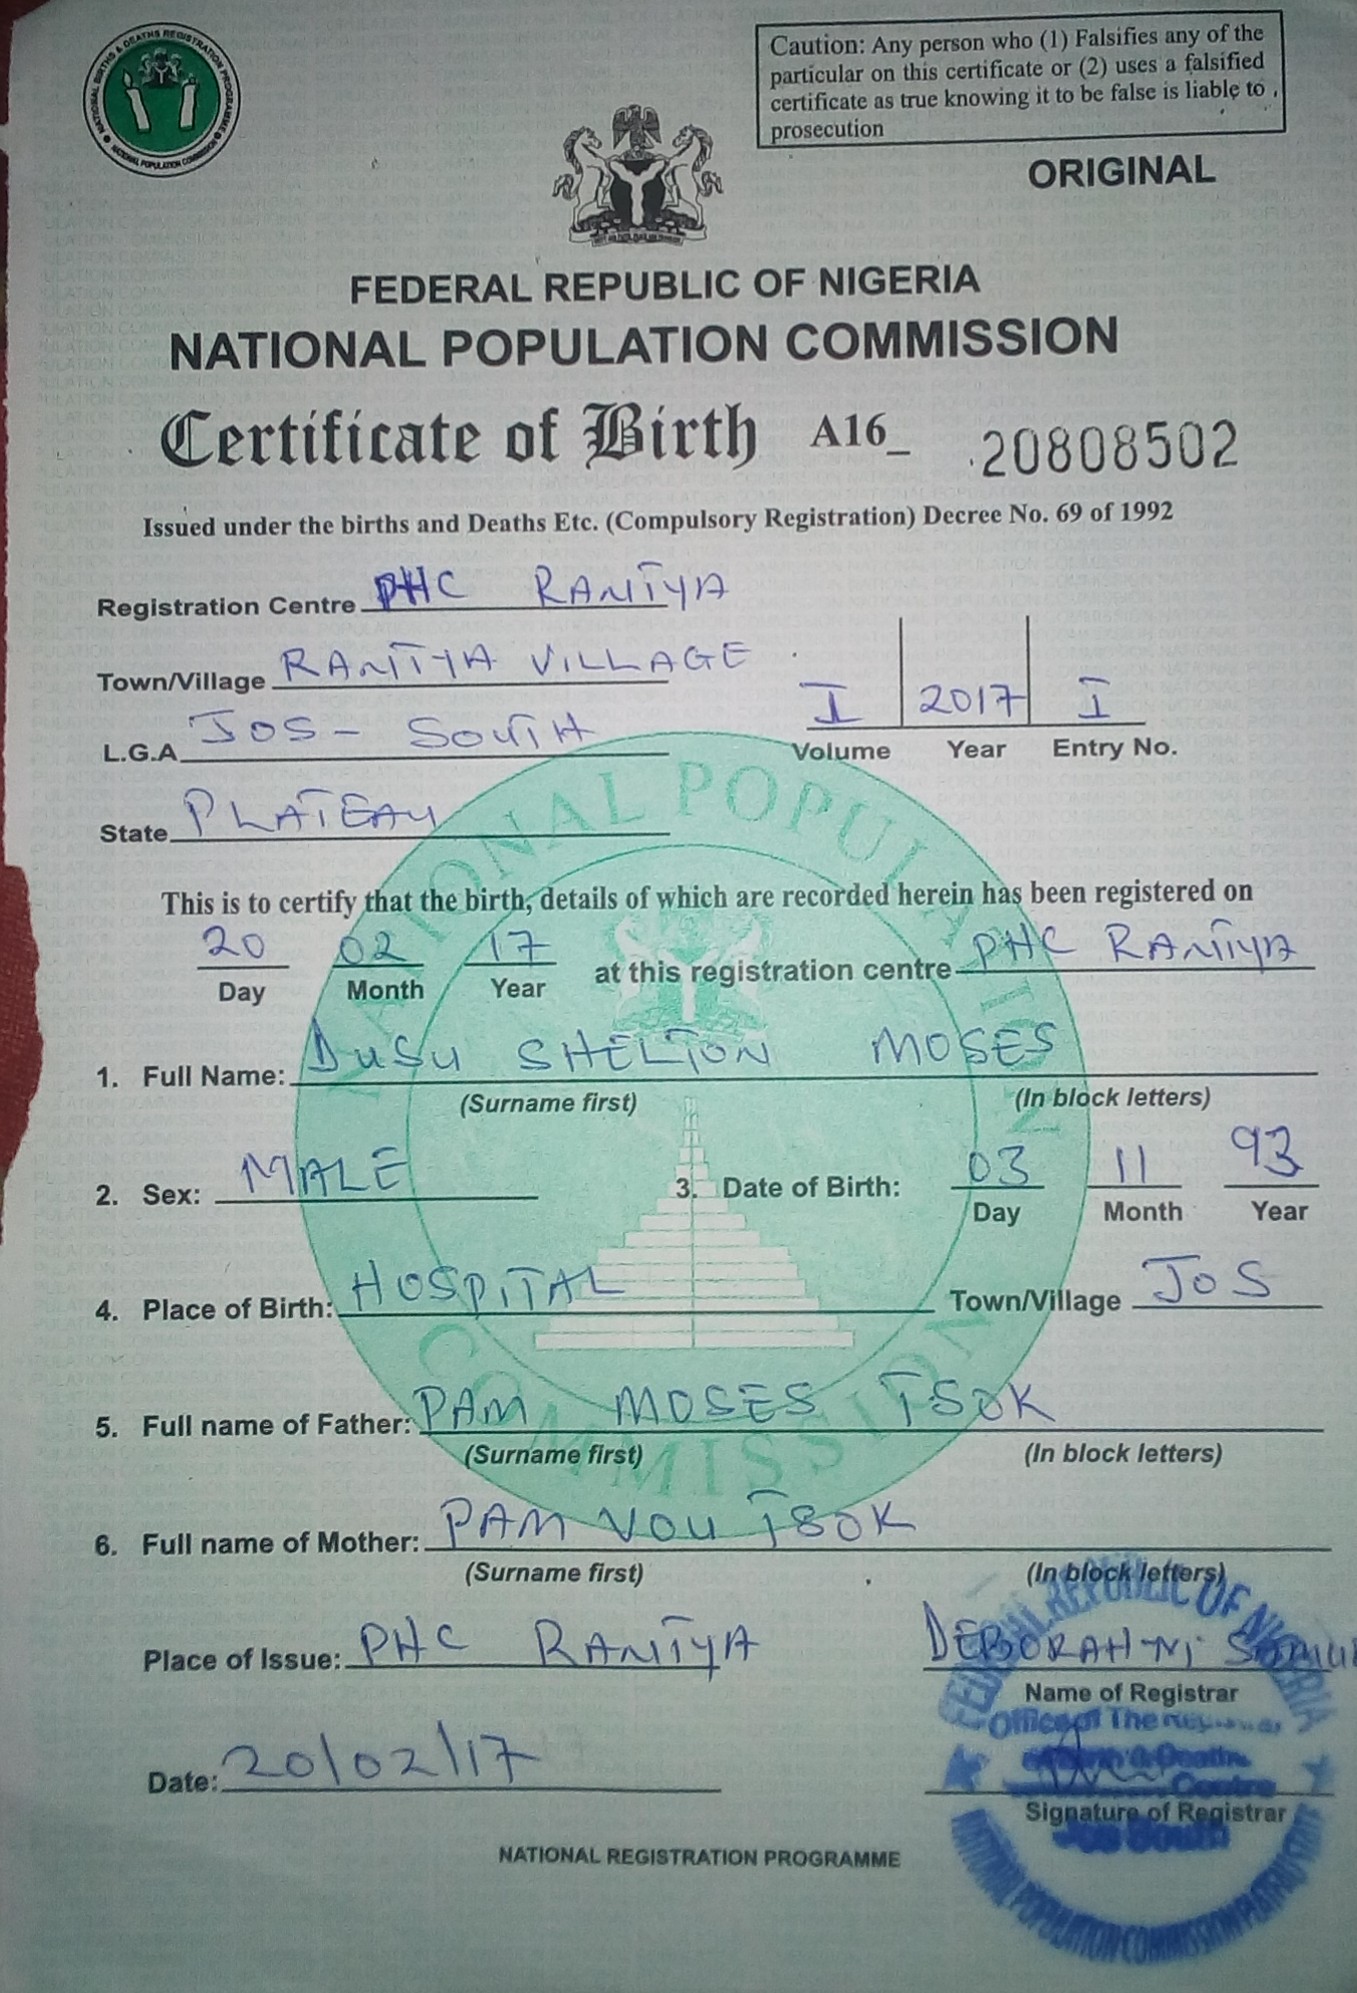 NATIONAL BIRTHS & DEATHS REGISTRATION PROGRAMME
NATIONAL POPULATION COMMISSION
Caution: Any person who (1) Falsifies any of the
particular on this certificate or (2) uses a falsified
certificate as true knowing it to be false is liable to
prosecution
ORIGINAL
FEDERAL REPUBLIC OF NIGERIA
NATIONAL POPULATION COMMISSION
Certificate of Birth A16_ 20808502
Issued under the births and Deaths Etc. (Compulsory Registration) Decree No. 69 of 1992
Registration Centre PHC RANTYA
Town/Village RANTYA VILLAGE
I 2017 I
Volume Year Entry No.
L.G.A JOS - SOUTH
State PLATEAU
NATIONAL POPULATION COMMISSION
This is to certify that the birth, details of which are recorded herein has been registered on
20 02 17 at this registration centre PHC RANTYA
Day Month Year
1. Full Name: DUSU SHELTON MOSES
(Surname first) (In block letters)
2. Sex: MALE 3. Date of Birth: 03 11 93
Day Month Year
4. Place of Birth: HOSPITAL Town/Village JOS
5. Full name of Father: PAM MOSES TSOK
(Surname first) (In block letters)
6. Full name of Mother: PAM VOU TSOK
(Surname first) (In block letters)
Place of Issue: PHC RANTYA DEBORAH
Name of Registrar
Date: 20/02/17
Signature of Registrar
FEDERAL REPUBLIC OF NIGERIA
Office of The
Centre
Jos South
NATIONAL POPULATION COMMISSION PLATEAU STATE
NATIONAL REGISTRATION PROGRAMME